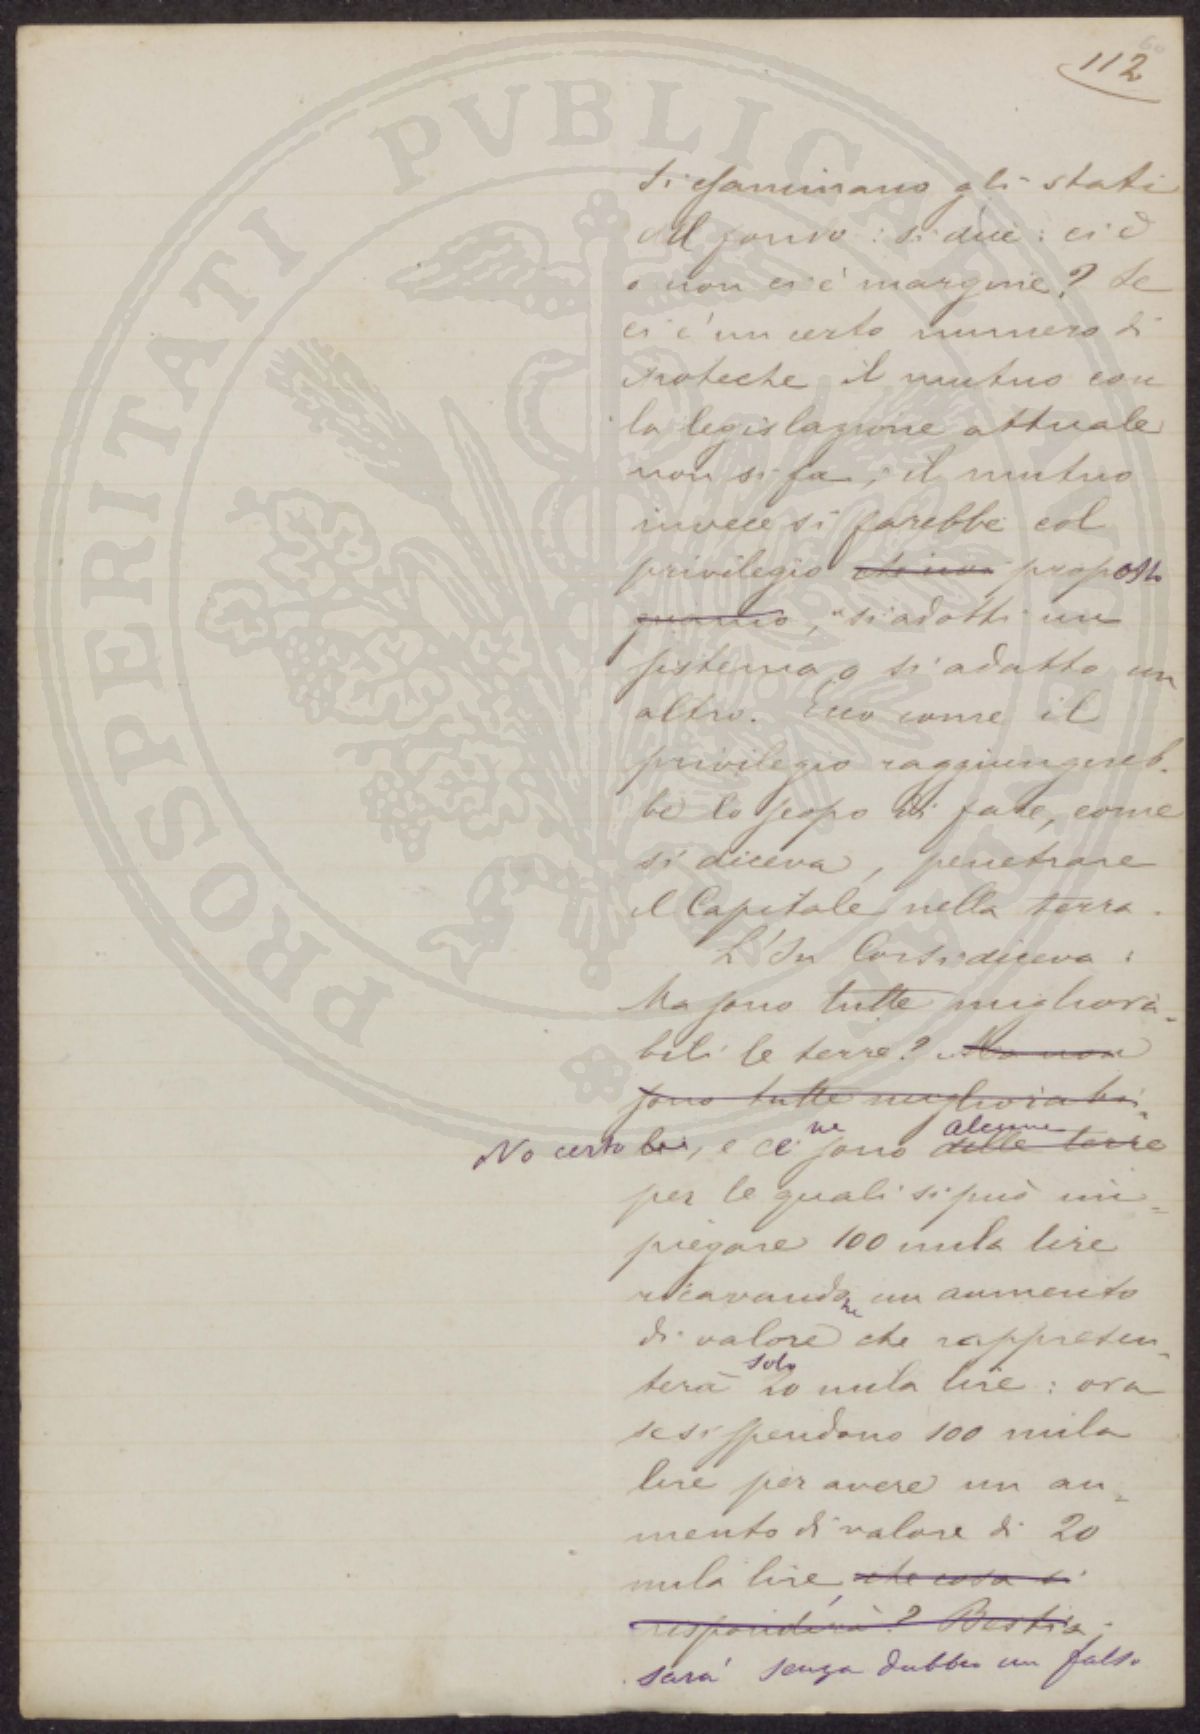 112
PROSPERITATI PVBLICAE AVGENDAE
Si esaminano gli stati
del fondo: si dice: ci è
o non ci è margine? Se
ci è un certo numero di
ipoteche il mutuo con
la legislazione attuale
non si fa; il mutuo
invece si farebbe col
privilegio che noi proposto
, si adotti un
sistema o si adatto un
altro. Ecco come il
privilegio raggiungereb-
be lo scopo di fare, come
si diceva, penetrare
il Capitale nella terra.
L'On Corsi diceva:
Ma sono tutte migliora=
bili le terre? Ma non
sono tutte migliorabi=
No certo li, e ce ne sono alcune delle terre
per le quali si può im=
piegare 100 mila lire
ricavandone un aumento
di valore che rappresen=
terà solo 20 mila lire: ora
se si spendono 100 mila
lire per avere un au=
mento di valore di 20
mila lire, che cosa si
risponderà? Bestia;
sarà senza dubbio un falso